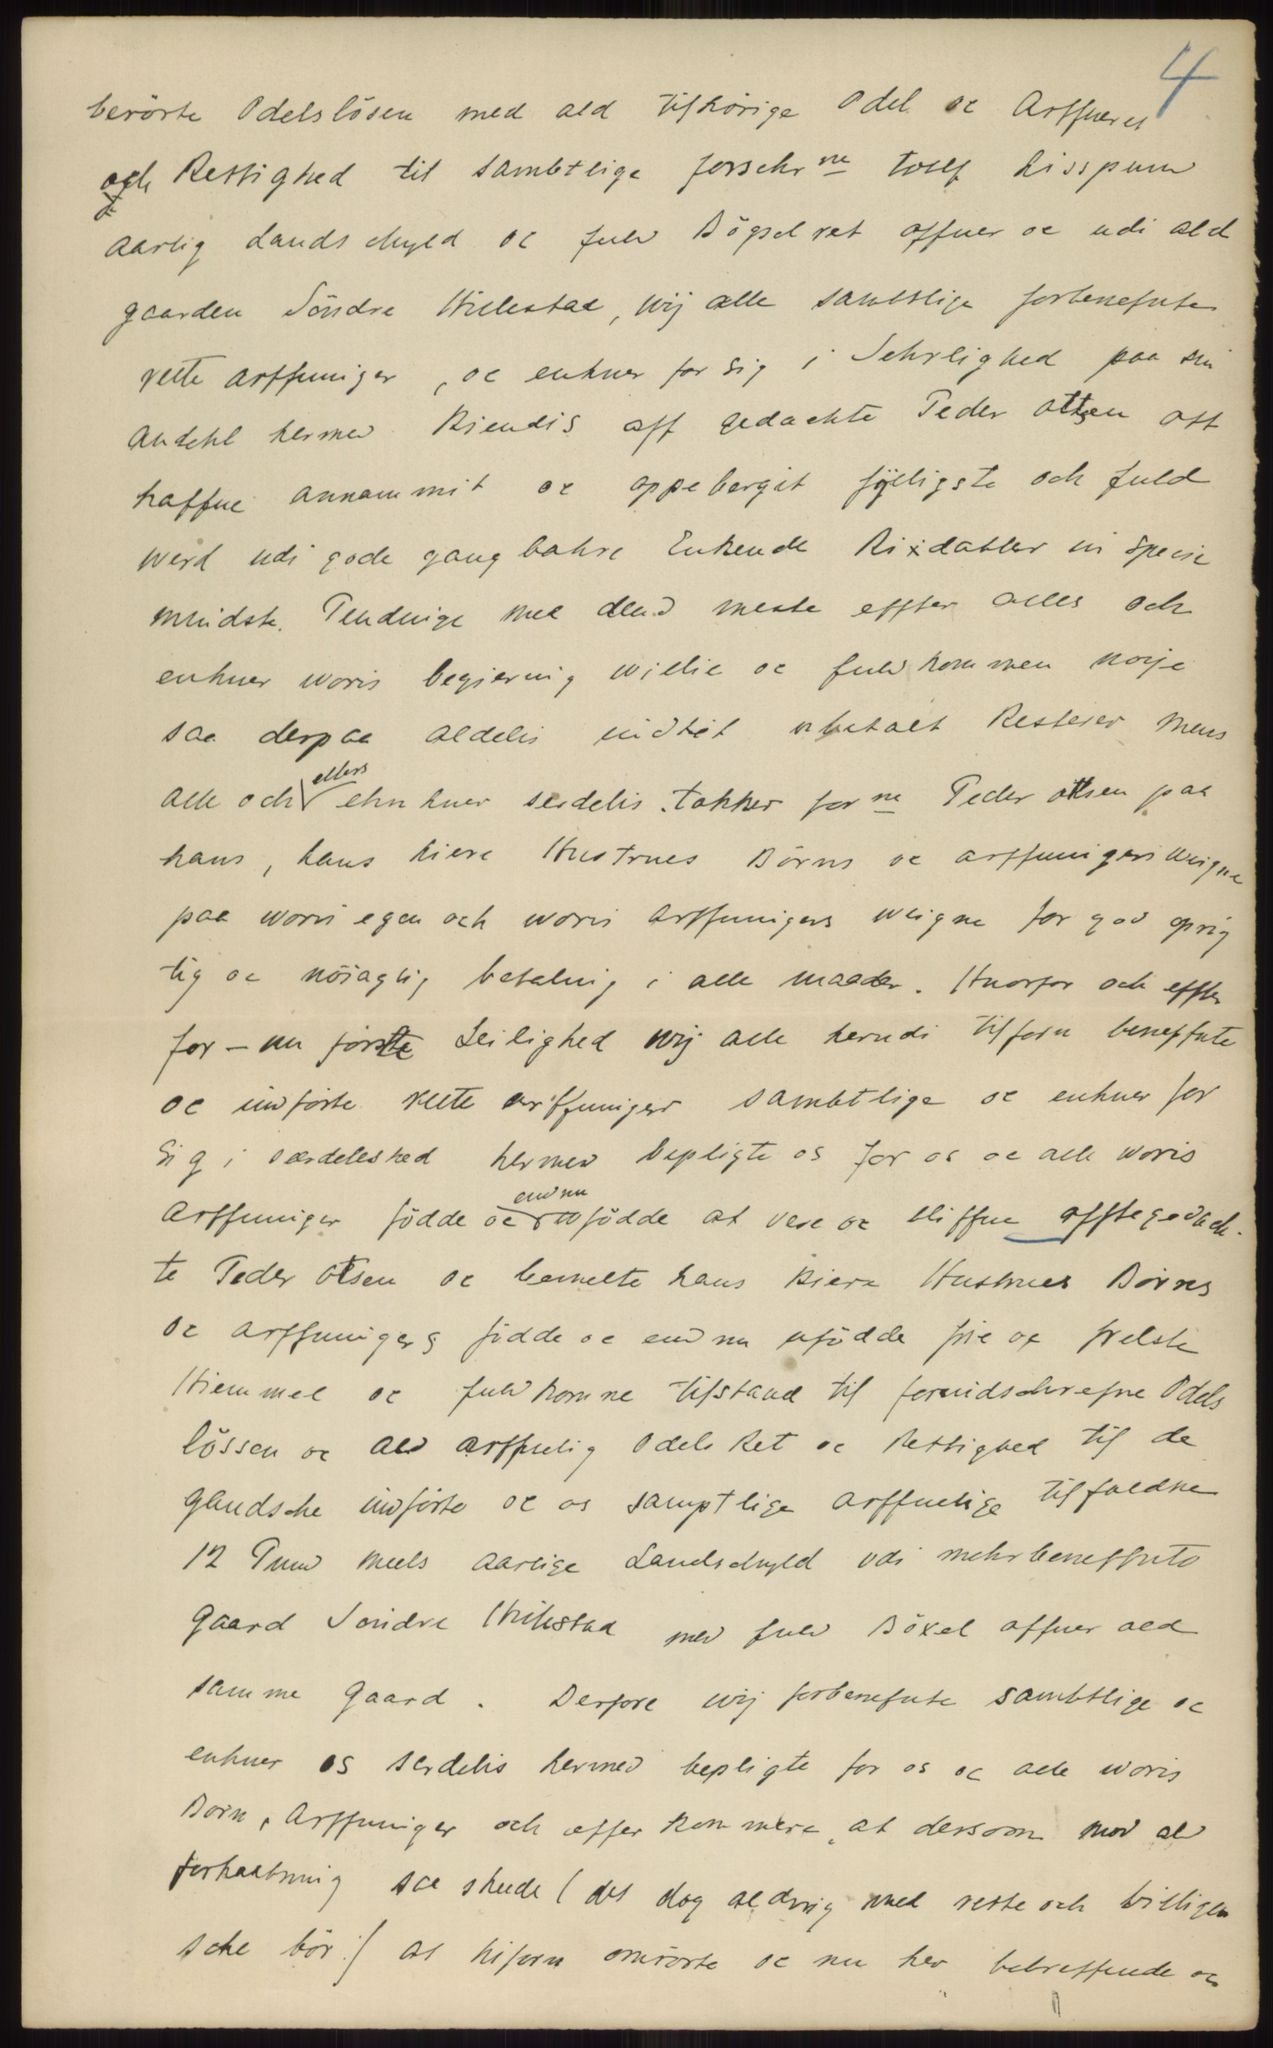 4
berörte Odelslösen med ald tilhörige Odel oc Arffueret
och Rettighed til sambtlige forschrne tolf Lisspund
aarlig Landschyld oc fuld Bögsel ret offuer oc udi ald
gaarden Söndre Hillestad, wij alle sambtlige forbenefnte
rette arffuinger, oc enhuer for sig i Sehrlighed paa sin
andehl hermed Kiendis aff gedachte Peder Ottsen att
haffue annammit oc oppebergit fyeligste och fuld
werd udi gode gangbahre Enkende Rixdahler in specie
mindste Pendinge med dend meste effter alles och
enhuer woris begiering willie oc fuldkommen nöye
saa derpaa aldelis indtet ubetalt Resterer mens
alle och ellers ehnhuer serdelis takker forne Peder Ottsen paa
hans, hans kiere Hustrues Börns oc arffuingers weigne
paa woris egen och woris Arffuingers weigne for god oprig
tig oc nöiaglig betaling i alle maader. Huorfor och effter
for-ne förste Leilighed wij alle herudi tilforn beneffnte
oc indförte rette arffuinger sambtlige oc enhuer for
sig i særdeleshed hermed bepligte os for os oc alle woris
Arffuinger födde oc endnu ufödde at vere oc bliffue offtegedach-
te Peder Otsen oc bemelte hans kiere Hustrues Börnes
oc arffuingers födde oc endnu ufödde frie oc frelste
Hiemmel oc fuldkomne tilstand til foruidschrefne Odels
lössen oc ald arffuelig Odels Ret oc Rettighed til de
gandsche indförte oc os samptlige arffuelige tilfaldne
12 Pund meels aarlige Landschyld udi mehrbeneffnte
gaard Söndre Hillestad med fuld Böxel offuer ald
samme gaard. Derfore wij forbenefnte sambtlige oc
enhuer os serdelis hermed bepligte for os oc alle woris
Börn, Arffuinger och efterkommere, at dersom mod al
forhaabning saa skeede (det dog aldrig med rette och billigen
sche bör:) at hiforn omrörte oc nu her betreffende oc